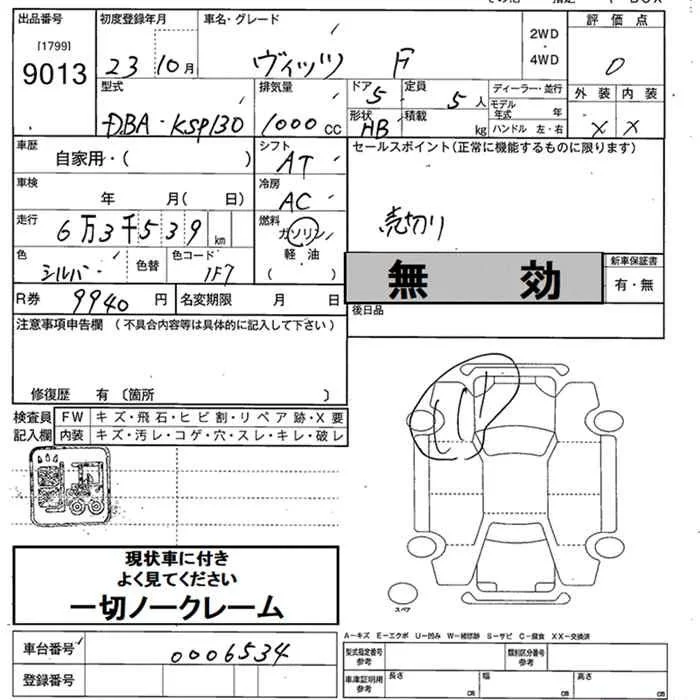 出品番号 初度登録年月 車名・グレード 評価点
[1799]
9013 23 10月 ヴィッツ F 2WD・4WD 0
型式 排気量 ドア 5 定員 5人 ディーラー・並行 外装 内装
DBA・KSP130 1000cc 形状 HB 積載 kg モデル年式 年 X X
ハンドル 左・右
車歴 シフト セールスポイント(正常に機能するものに限ります)
自家用・( ) AT
車検 冷房
年 月( 日) AC
走行 燃料 売切り
6万3千539km ガソリン
色 色替 色コード 軽油
シルバー 1F7 ( ) 無効 新車保証書
R券 9940円 名変期限 月 日 有・無
後日品
注意事項申告欄(不具合内容等は具体的に記入して下さい)
修復歴 有〔箇所 〕
検査員 FW キズ・飛石・ヒビ割・リペア跡・X要
記入欄 内装 キズ・汚レ・コゲ・穴・スレ・キレ・破レ
現状車に付き
よく見てください
一切ノークレーム
スペア
A-キズ E-エクボ U-凹み W-補修跡 S-サビ C-腐食 XX-交換済
車台番号 0006534 型式指定番号 参考 類別区分番号 参考
登録番号 車庫証明用 参考 長さ cm 幅 cm 高さ cm